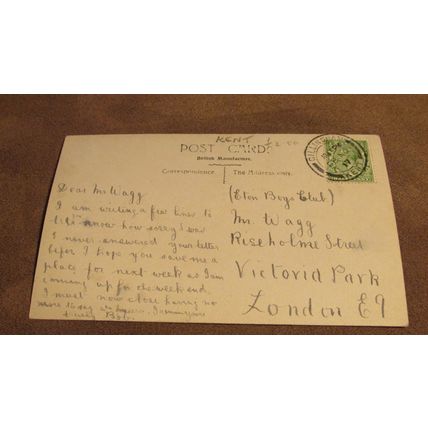 KENT £2.00
POST CARD
British Manufacture.
Correspondence.
The Address only.
GILLINGHAM
KENT
Dear Mr Wagg
I am writing a few lines to
let know how sorry I was
I never answered your letter
befor I hope you save me a
place for next week as I am
coming up for de week end.
I must now close having no
more to say
I
truely Bob.
(Eton Boys Club)
Mr Wagg
Riseholme Street
Victoria Park
London E9